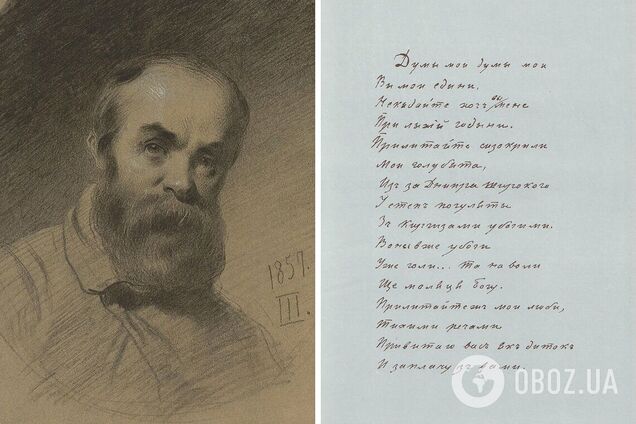 1857.
III.
Думы мои думы мои
Вы мои едини,
Некыдайте хочъ вы мене
При лыхій годыни.
Прилитайте сизокрили
Мои голубята,
Изъ за Днипра широкого
У степъ погуляты
Зъ киргизами убогими.
Воны вже убоги
Уже голи... та на воли
Ще моляця богу.
Прилитайтежъ мои люби,
Тихими речами
Привитаю васъ якъ дитокъ
И заплачу зъ вами.
OBOZ.UA